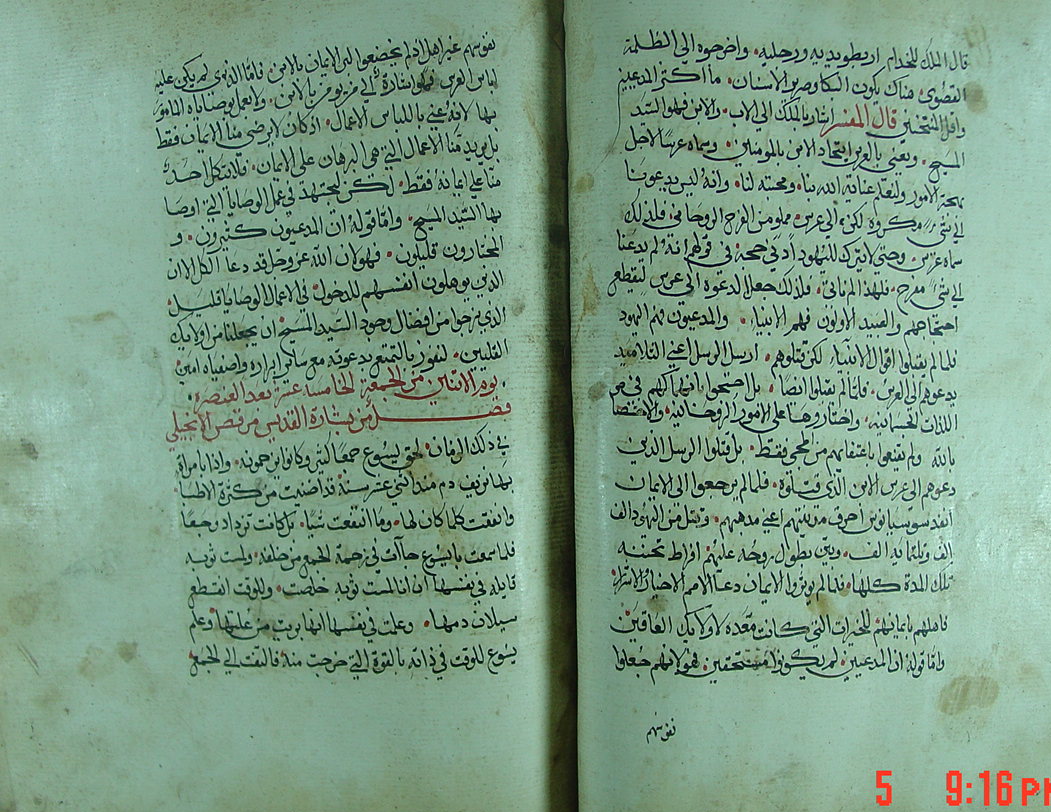 قال الملك للخدام اربطوا يديه ورجليه واخرجوه الي الظلمة
القصوي هناك يكون البكا وصرير الاسنان ما اكثر المدعيين
واقل المنتخبين قال المفسر اشار بالملك الي الاب والابن فهو السيد
المسيح ويعني بالعرس اتحاد الابن بالمومنين وسماه عرسًا لاجل
بهجة الامور ولنعلم عناية الله بنا ومحبته لنا وانه ليس يدعونا
الي شيء مكروه لكن الي عرس مملو من الفرح الروحاني فلذلك
سماه عرس وحتي لا يترك لليهود ادني حجة في قولهم انه لم يدعنا
الي شيء مفرح فلهذا المعاني فلذلك جعل الدعوة الي عرس ليقطع
احتجاجهم والعبيد الاولون فهم الانبياء والمدعيون فهم اليهود
فلما لم يقبلوا اقوال الانبياء لكن قتلوهم ارسل الرسل اعني التلاميد
يدعوهم الي العرس فلما لم يقبلوا ايضا بل اضحوا بانهماكهم في
اللذات الجسمانيه واختاروها علي الامور الروحانية
بالله ولم يقنعوا باعتفائهم من المجي فقط بل قتلوا الرسل الذين
دعوهم الي عرس الابن الذي قتلوه فلما لم يرجعوا الي الايمان
انفد سوسيانوس احرق مدينتهم اعني مدهبهم وقتل من اليهود الف
الف وثلثمايه الف وبين بطول روحه عليهم افراط تحننه
تلك المدة كلها فلما لم يوثروا الايمان دعا الامم الاخيار والاشرار
فاهلهم بايمانهم للخيرات التي كانت معده لاولايك العاقين
واما قوله ان المدعيين لم يكونوا مستحقين فهو لانهم جعلوا
نفوسهم
نفوسهم غير اهل اذ لم يخضعوا الي الايمان بالابن فاما الذي لم يكن عليه
لباس العرس فهو اشارة الي من يومن بالابن ولا يعمل بوصاياه المامور
بها لانه عني باللباس الاعمال اذ كان لا يرضي منا الايمان فقط
بل يريد منا الاعمال التي هي البرهان علي الايمان فلا يتكل احد
منا علي ايمانه فقط لكن ليجتهد في عمل الوصايا التي اوصا
بها السيد المسيح واما قوله ان المدعيون كثيرون و
المختارون قليلون فهو لان الله عز وجل قد دعا الكل الا ان
الذين يوهلون انفسهم للدخول في الاعمال الوصايا قليل
الذي نرجوا من افضال وجود السيد المسيح ان يجعلنا من اولايك
القليين لنفوز بالتمتع بدعوته مع ساير ابراره واصفياه امين
يوم الاتنين من الجمعة الخامسه عشر بعد العنصره
فصل من بشارة القديس مرقص الانجيلي
في ذلك الزمان لحق يسوع جمعًا كثير وكانوا يزحمونه واذا بامراة
بها نزيف دم مند اثني عشر سنة قد اضنيت من كثرة الاطبا
وانفقت كلما كان لها وما انتفعت شيًا بل كانت تزداد وجعًا
فلما سمعت بايسوع جاآت في زحمة الجمع من خلفه ولمست توبه
قايلة في نفسها ان انا لمست ثوبه خلصت وللوقت انقطع
سيلان دمها وعلمت في نفسها انها بريت من علتها وعلم
يسوع للوقت في ذاته بالقوة التي خرجت منه فالتفت الي الجمع
5 9:16 PM